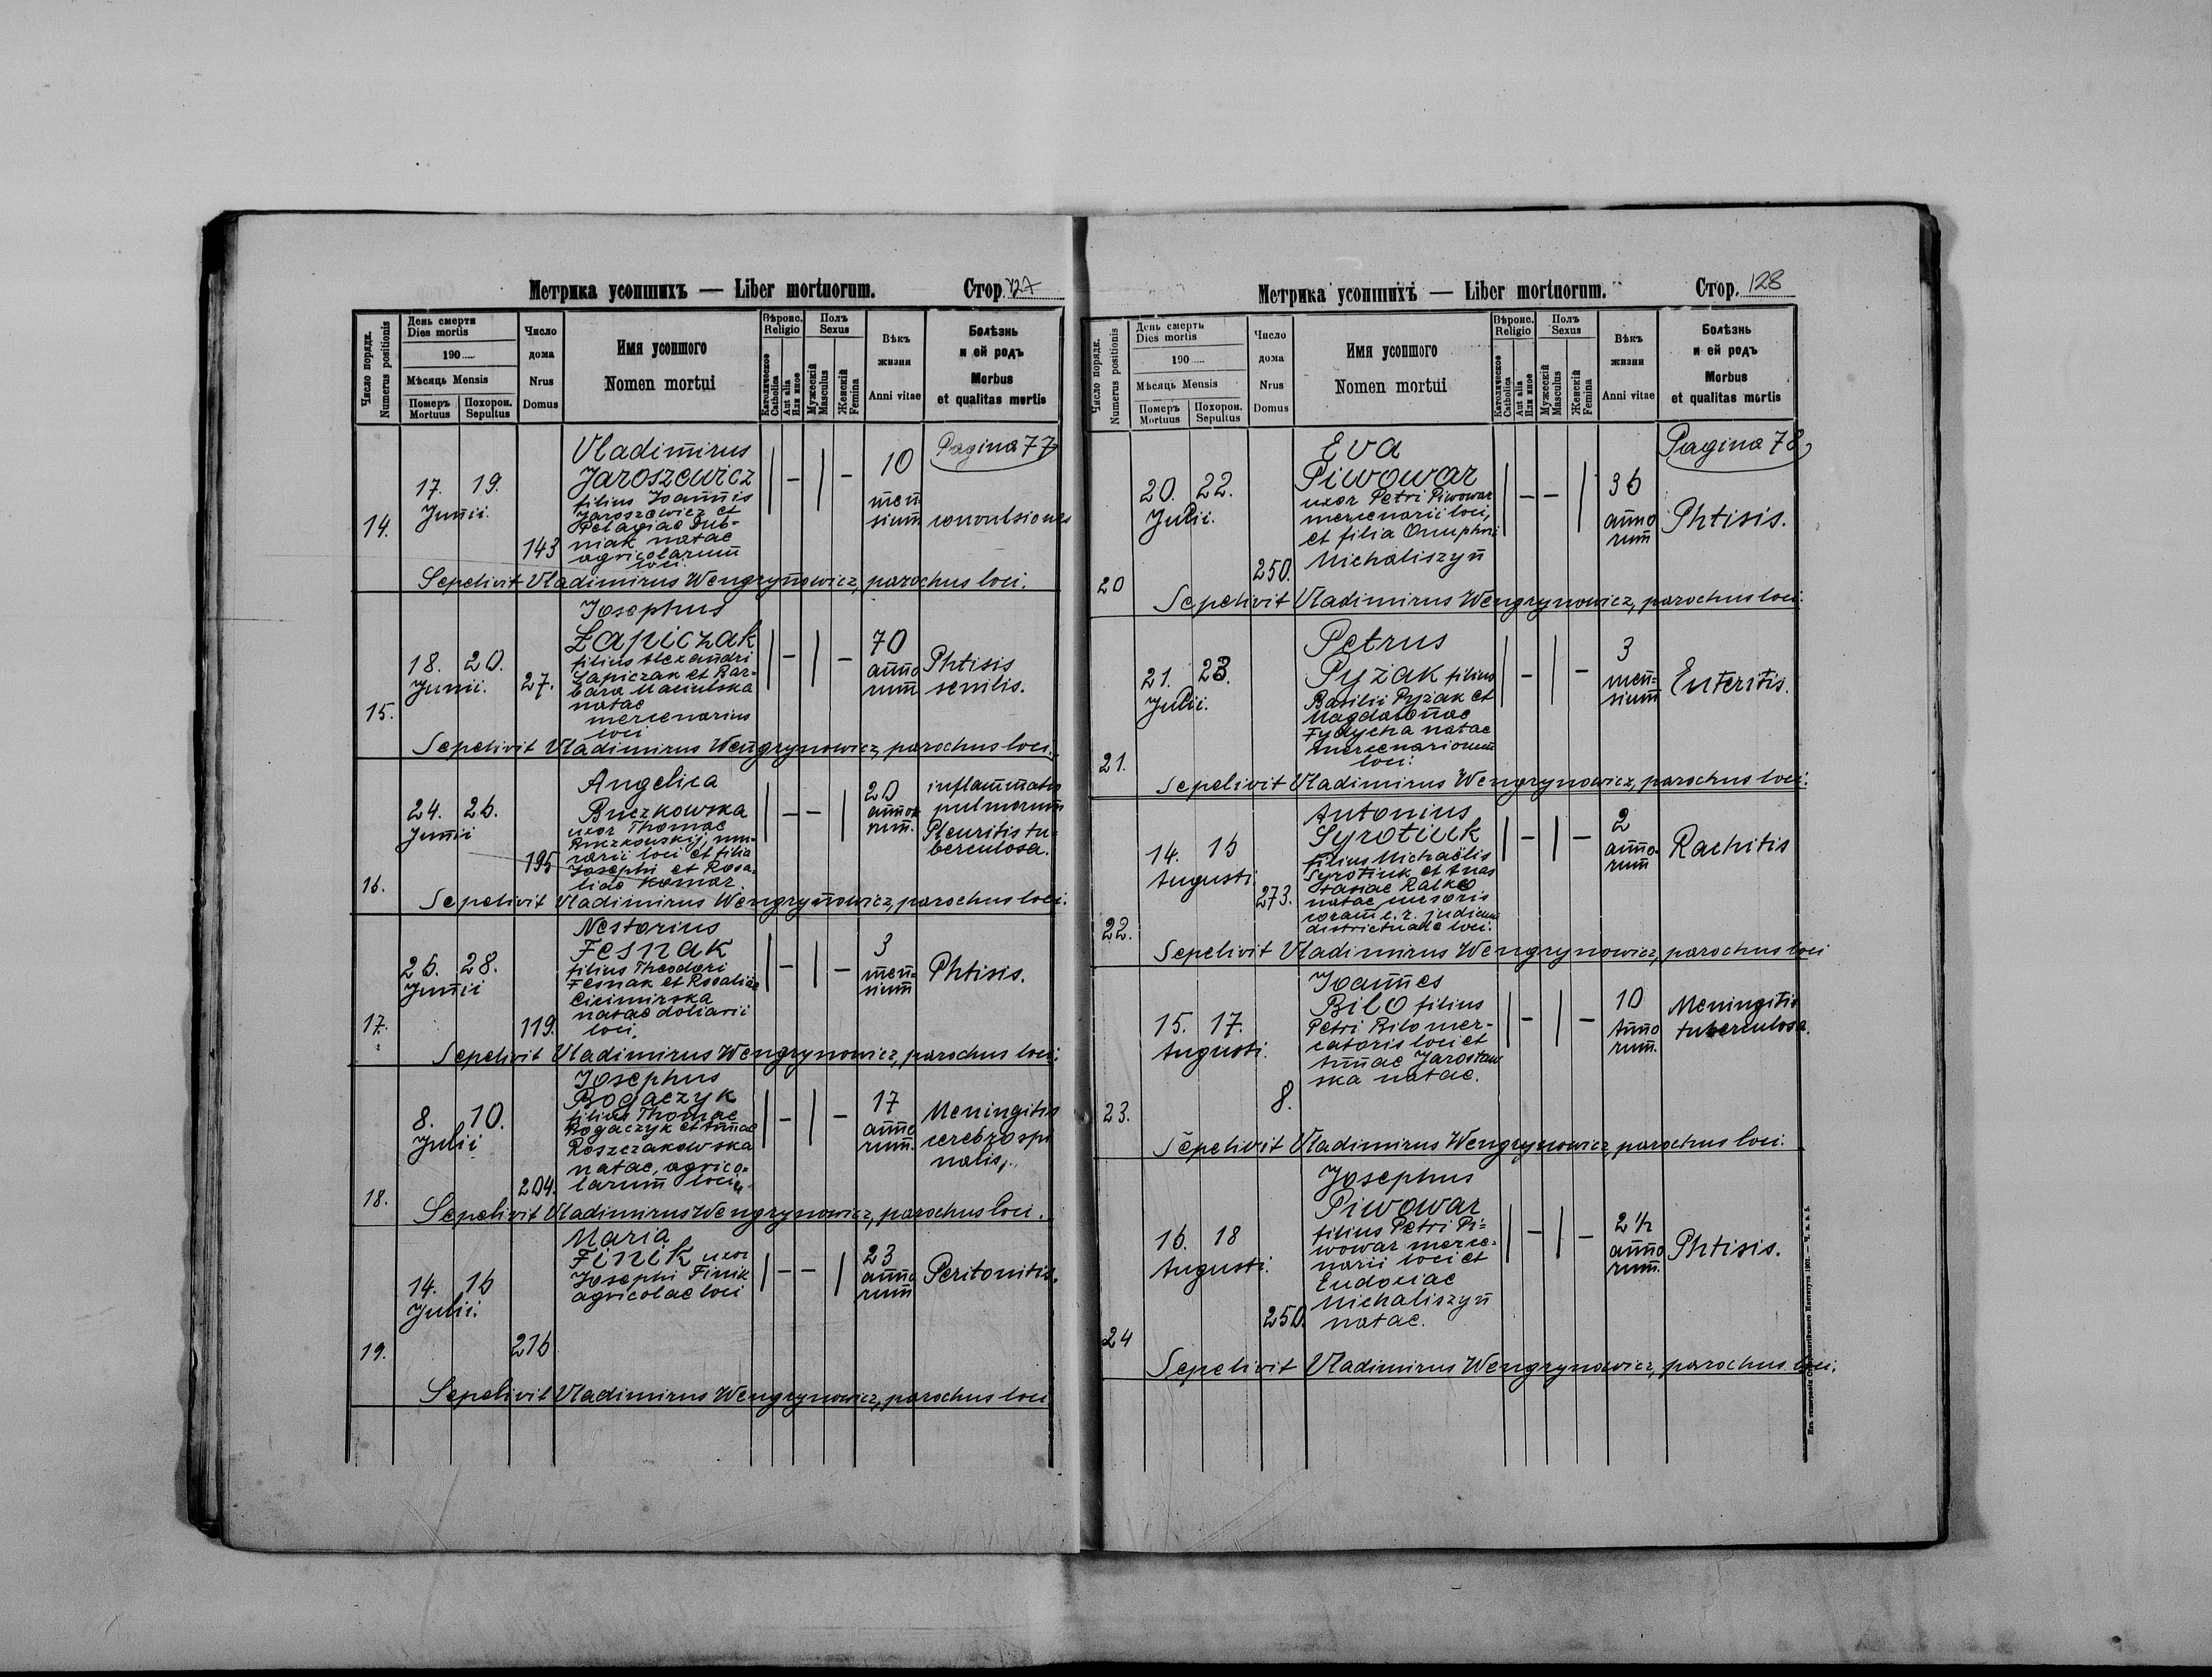 Метрика усопшихъ — Liber mortuorum. Стор. 127
Число порядк.
Numerus positionis
День смерти
Dies mortis
190
Мѣсяць Mensis
Померъ
Mortuus
Похорон.
Sepultus
Число
дома
Nrus
Domus
Имя усопшого
Nomen mortui
Вѣроис.
Religio
Католическое
Catholica
Aut alia
Или иное
Полъ
Sexus
Мужескій
Masculus
Женскій
Femina
Вѣкъ
жизни
Anni vitae
Болѣзнь
и ей родъ
Morbus
et qualitas mortis
Pagina 77
14.
17. 19.
Junii.
143
Vladimirus
Jaroszewicz
filius Joannis
Jaroszewicz et
Pelagiae Dub-
niak natae
agricolarum
loci.
10
men
sium
convulsiones
Sepelivit Vladimirus Wengrynowicz, parochus loci.
15.
18. 20.
Junii.
27.
Josephus
Łapiczak
filius Alexandri
Łapiczak et Bar-
bara Maciulska
natae
mercenarius
loci
70
anno
rum
Phtisis
senilis.
Sepelivit Vladimirus Wengrynowicz, parochus loci.
16.
24. 26.
Junii
195
Angelica
Buczkowska
uxor Thomae
Buczkowskij, mu-
rarii loci et filia
Josephi et Rosa-
liae Komar.
20
anno
rum.
inflammatio
pulmorum
Pleuritis tu-
berculosa.
Sepelivit Vladimirus Wengrynowicz, parochus loci.
17.
26. 28.
Junii
119.
Nestorius
Fesnak
filius Theodori
Fesnak et Rosaliae
Cicimirska
natae doliarii
loci
3
men=
sium
Phtisis.
Sepelivit Vladimirus Wengrynowicz, parochus loci.
18.
8. 10.
Julii
204.
Josephus
Bogaczyk
filius Thomae
Bogaczyk et Annae
Roszczakowska
natae, agrico=
larum loci
17
anno
rum.
Meningitis
cerebrospi
nalis.
Sepelivit Vladimirus Wengrynowicz, parochus loci.
19.
14. 16
Julii.
216
Maria
Finik uxor
Josephi Finik
agricolae loci
23
anno
rum
Peritonitis.
Sepelivit Vladimirus Wengrynowicz, parochus loci
Метрика усопшихъ — Liber mortuorum. Стор. 128
Число порядк.
Numerus positionis
День смерть
Dies mortis
190
Мѣсяць Mensis
Померъ
Mortuus
Похорон.
Sepultus
Число
дома
Nrus
Domus
Имя усопшого
Nomen mortui
Вѣроис.
Religio
Католическое
Catholica
Aut alia
Или иное
Полъ
Sexus
Мужескій
Masculus
Женскій
Femina
Вѣкъ
жизни
Anni vitae
Болѣзнь
и ей родъ
Morbus
et qualitas mortis
Pagina 78
20
20. 22.
Julii.
250.
Eva
Piwowar
uxor Petri Piwowar
mercenarii loci,
et filia Onuphrii
Michaliszyn
36
anno
rum
Phtisis.
Sepelivit Vladimirus Wengrynowicz, parochus loci.
21.
21. 23.
Julii.
Petrus
Pyżak filius
Basilii Pyżak et
Magdalenae
Fydycha natae
mercenariorum
loci.
3
men=
sium
Enteritis.
Sepelivit Vladimirus Wengrynowicz, parochus loci.
22.
14. 16
Augusti.
273.
Antonius
Syrotiuk
filius Michaëlis
Syrotiuk et Anas
tasiae Ralko
natae, cursoris
coram c. r. judicium
districtuale loci.
2
anno-
rum
Rachitis
Sepelivit Vladimirus Wengrynowicz, parochus loci
23.
15. 17.
Augusti.
8.
Joannes
Bilo filius
Petri Bilo mer-
catoris loci et
Annae Jarosław
ska natae.
10
Anno
rum.
Meningitis
tuberculosa.
Sepelivit Vladimirus Wengrynowicz, parochus loci.
24
16. 18
Augusti.
250.
Josephus
Piwowar
filius Petri Pi=
wowar merce-
narii loci et
Eudoxiae
Michaliszyn
natae.
2 1/2
anno
rum.
Phtisis.
Sepelivit Vladimirus Wengrynowicz, parochus loci.